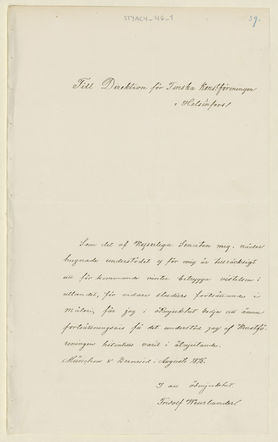 STYACH-46-1
59.
Till Direktion för Finska Konstföreningen
i Helsinfors!
Som det af Hyserliga Senaten mig nådes
hugnade understödet ej för mig är tillräckligt
att för kommande vinter betrygga vistelsen i
utlandet, för vidare studiers fortsättande i
Måleri, får jag i ödmjukhet bedja att ännu
fortsättningsvis få det understöd jag af Konstfö-
reningen hittills varit i åtnjutande.
München d. Augusti 1875.
I all ödmjukhet
Fridolf Weurlander